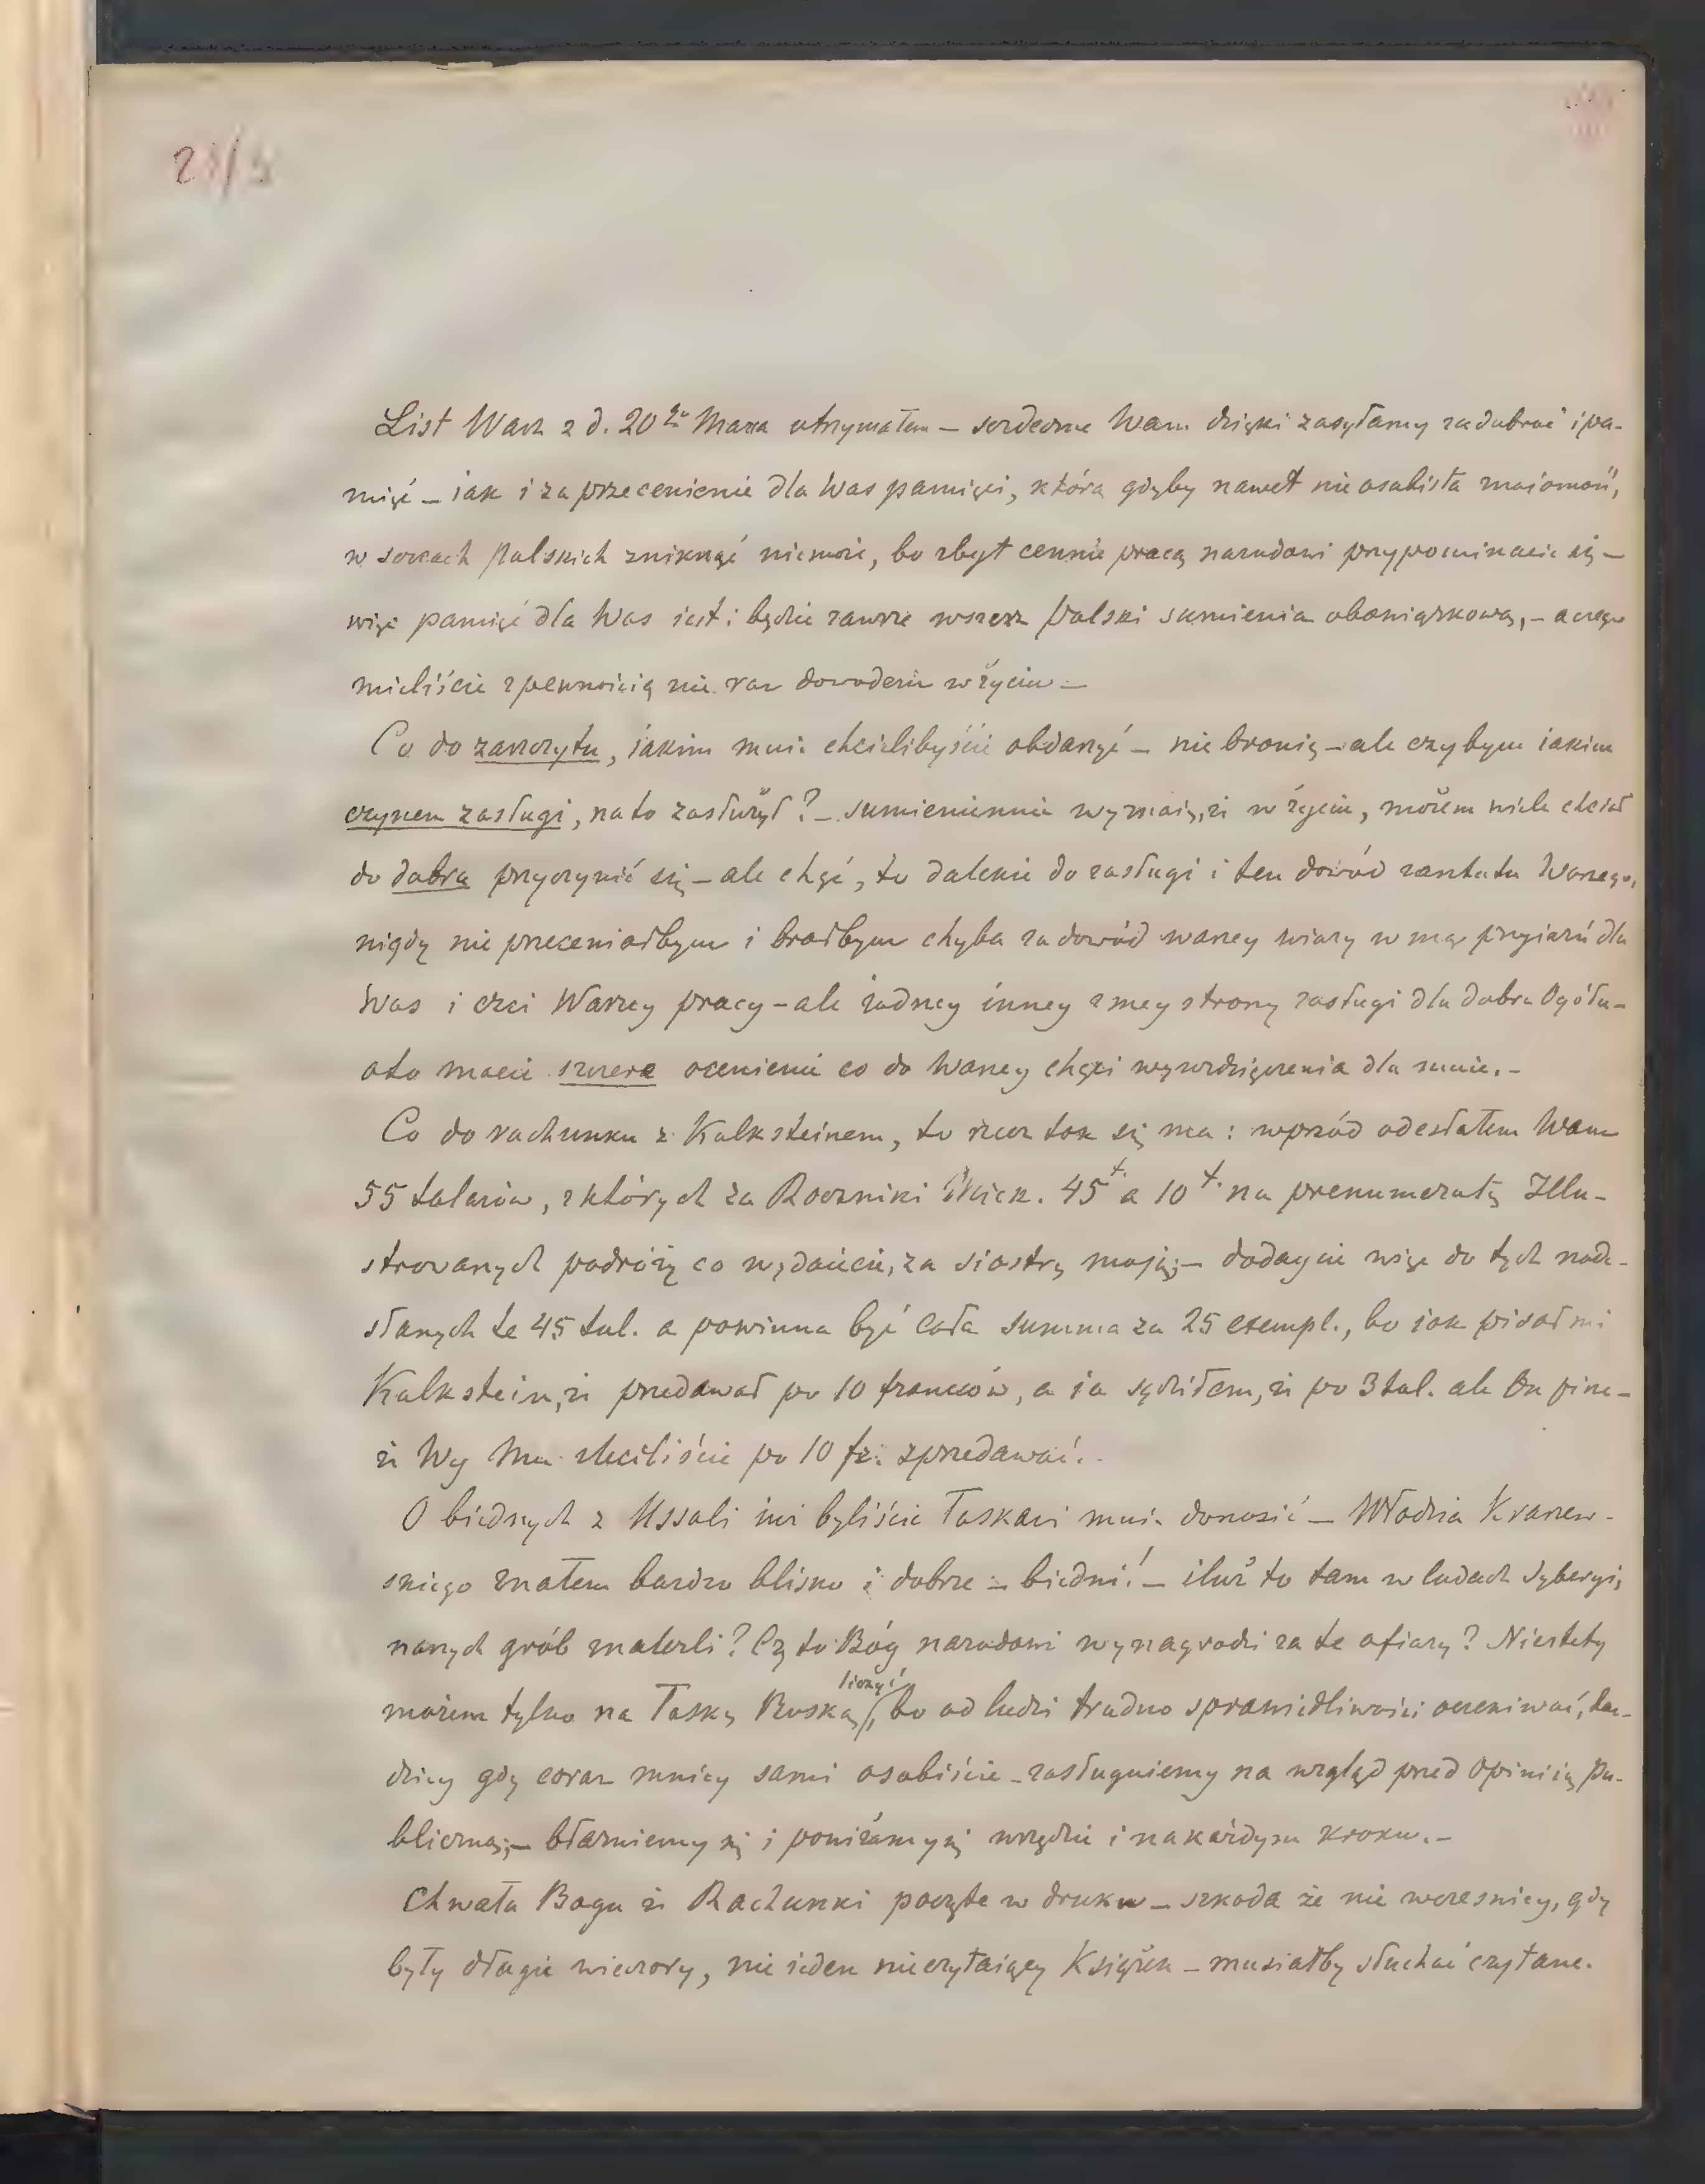 List Wasz z d. 20go Marca otrzymałem – serdeczne Wam dzięki zasyłamy za dobroć i pa-
mięć – jak i za przecenienie dla Was pamięci, która gdyby nawet nie osobista znaiomość,
w sercach Polskich zniknąć niemoże, bo zbyt cennie pracą narodowi przypominacie się –
więc pamięć dla Was iest i będzie zawsze wszerz Polski sumienia obowiązkową, – a czego
mieliście z pewnością nie raz dowodem w życiu –
Co do zaszczytu, iakim mnie chcielibyście obdarzyć – nie bronię – ale czy bym iakim
czynem zasługi, na to zasłużył? – sumieniennie wyznaię, że w życiu, możem wiele chciał
do dobra przyczynić się – ale chęć, to dalekie do zasługi i ten dowód Waszego,
nigdy nie przeceniałbym i brałbym chyba za dowód waszey wiary w mą przyiaźń dla
Was i czci Waszey pracy – ale żadney inney z mey strony zasługi dla dobra Ogółu –
oto macie szczere ocenienie co do Waszey chęci wyszczegxólnienia dla mnie. –
Co do rachunku z Kalksteinem, to rzecz tak się ma: wprzód odesłałem Wam
55 talarów, z których za Roczniki 45 t. a 10 t. na prenumeratę Illu-
strowanych podróży co wydaiecie, za siostrę moją; – dodaycie więc do tych nade-
słanych te 45 tal. a powinna być cała summa za 25 exempl., bo iak pisał mi
Kalkstein, że przedawał po 10 franków, a ia sądziłem, że po 3 tal. ale On pisze –
że Wy Mu zleciliście po 10 fr. zprzedawać. –
O biednych z Ussoli iuż byliście łaskawi mnie donosić – Włodzia Kraszew-
skiego znałem bardzo blisko i dobrze – biedni! – iluż to tam w lodach Syberyi
naszych grób znaleźli? Czy to Bóg narodowi wynagrodzi za te ofiary? Niestety
możem tylko na łaskę Boską liczyć, bo od ludzi trudno sprawiedliwości oczekiwać, bar-
dziey gdy coraz mniey sami osobiście – zasługuiemy na wzgląd przed Opinią pu-
bliczną; – błaźniemy się i poniżamy się wszędzie i na każdym kroku. –
Chwała Bogu że Rachunki poczęte w druku – szkoda że nie wcześniey, gdy
były długie wieczory, nie ieden nieczytaiący Książek – musiałby słuchać czytane.